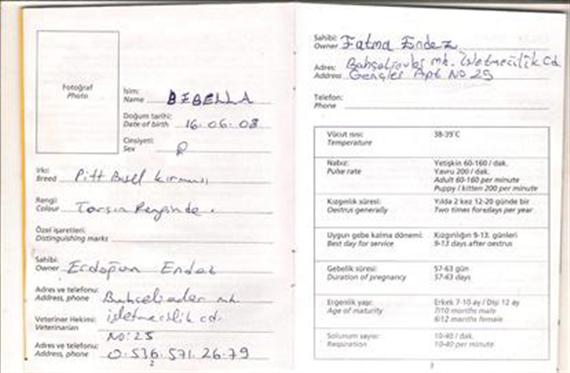 Fotoğraf
Photo
İsim:
Name BEBELLA
Doğum tarihi:
Date of birth 16.06.08
Cinsiyeti:
Sex
Irkı:
Breed Pitt
Rengi:
Colour
Özel işaretleri:
Distinguishing marks
Sahibi:
Owner Erdoğan Endez
Adres ve telefonu:
Address, phone Bahçelievler mh.
Veteriner Hekimi: işletmecilik cd.
Veterinarian
NO: 25
Adres ve telefonu:
Address, phone 0.536.571.26.79
2
Sahibi:
Owner Fatma Endez
Adres: Bahçelievler mh. işletmecilik cd.
Address Gençler Apt NO 25
Telefon:
Phone
Vücut ısısı: 38-39°C
Temperature
Nabız: Yetişkin 60-160 / dak.
Pulse rate Yavru 200 / dak.
Adult 60-160 per minute
Puppy / kitten 200 per minute
Kızgınlık süresi: Yılda 2 kez 12-20 günde bir
Oestrus generally Two times for days per year
Uygun gebe kalma dönemi: Kızgınlığın 9-13. günleri
Best day for service 9-13 days after oestrus
Gebelik süresi: 57-63 gün
Duration of pregnancy 57-63 days
Ergenlik yaşı: Erkek 7-10 ay / Dişi 12 ay
Age of maturity 7/10 months male
6/12 months female
Solunum sayısı: 10-40 / dak.
Respiration 10-40 per minute
3